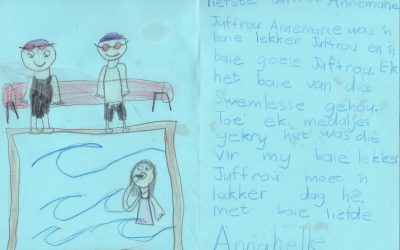 liefste Juffrou Annemane
Juffrou Annemane was 'n
baie lekker Juffrou en 'n
baie goeie Juffrou. Ek
het baie van die
swemlesse gehou.
Toe ek medaljes
gekry het was dit
vir my baie lekker
Juffrou moet 'n
lekker dag hê.
met baie liefde.
Annabelle